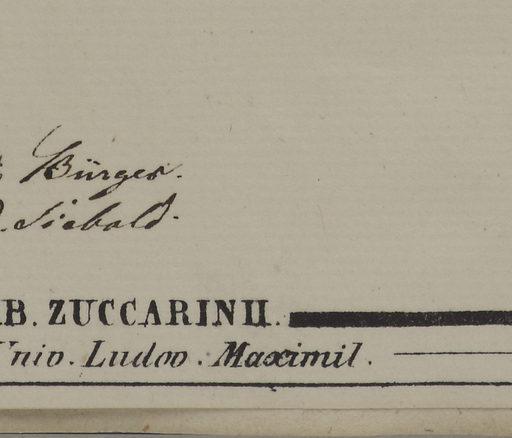 Bürger.
Siebold.
B. ZUCCARINII.
Univ. Ludov. Maximil.